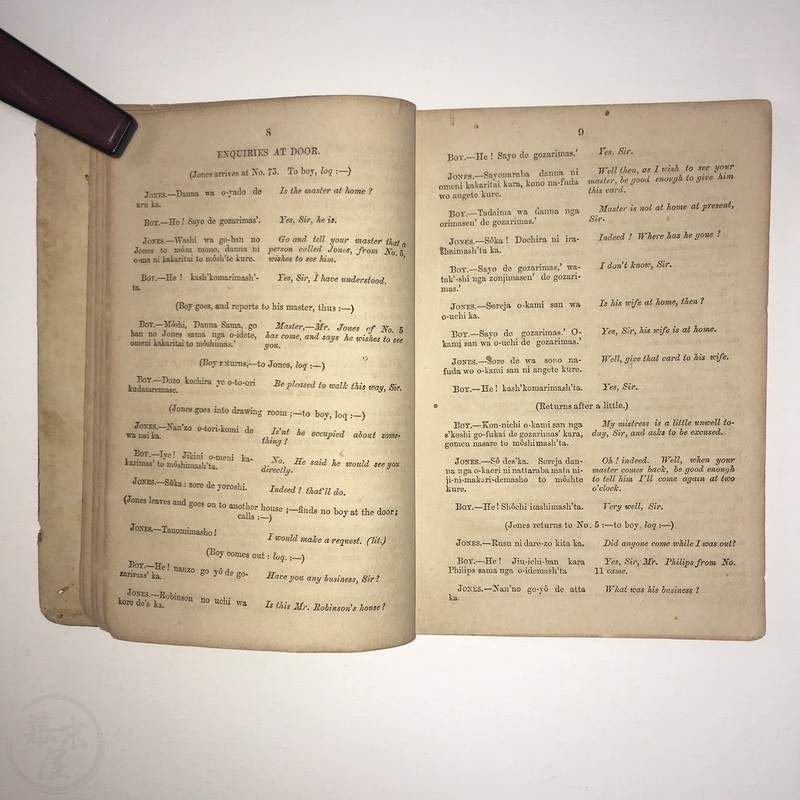 8
ENQUIRIES AT DOOR.
(Jones arrives at No. 75. To boy, loq :—)
JONES.—Danna wa o-yado de
aru ka.
Is the master at home ?
BOY.—He ! Sayo de gozarimas'.
Yes, Sir, he is.
JONES.—Washi wa go-ban no
Jones to môsu mono, danna ni
o-me ni kakaritai to môsh'te kure.
Go and tell your master that a
person called Jones, from No. 5,
wishes to see him.
BOY.—He ! kash'komarimash'-
ta.
Yes, Sir, I have understood.
(Boy goes, and reports to his master, thus :—)
BOY.—Môshi, Danna Sama, go
ban no Jones sama nga o-idete,
omeni kakaritai to môshimas.'
Master,—Mr. Jones of No. 5
has come, and says he wishes to see
you.
(Boy returns,—to Jones, loq :—)
BOY.—Dozo kochira ye o-to-ori
kudasaremase.
Be pleased to walk this way, Sir.
(Jones goes into drawing room ;—to boy, loq :—)
JONES.—Nan'zo o-tori-komi de
wa nai ka.
Is'nt he occupied about some-
thing ?
BOY.—Iye! Jikini o-meni ka-
karimas' to môshimash'ta.
No. He said he would see you
directly.
JONES.—Sôka: sore de yoroshi.
Indeed ? that'll do.
(Jones leaves and goes on to another house ;—finds no boy at the door;
calls :—)
JONES.—Tanomimasho !
I would make a request. (lit.)
(Boy comes out : loq. :—)
BOY.—He ! nanzo go yô de go-
zarimas' ka.
Have you any business, Sir ?
JONES.—Robinson no uchi wa
koro de's ka.
Is this Mr. Robinson's house ?
9
BOY.—He ! Sayo de gozarimas.'
Yes, Sir.
JONES.—Sayonaraba danna ni
omeni kakaritai kara, kono na-fuda
wo angete kure.
Well then, as I wish to see your
master, be good enough to give him
this card.
BOY.—Tadaima wa danna nga
orimasen' de gozarimas.'
Master is not at home at present,
Sir.
JONES.—Sôka ! Dochira ni ira-
shaimash'ta ka.
Indeed ! Where has he gone ?
BOY.—Sayo de gozarimas,' wa-
tak'-shi nga zonjimasen' de gozari-
mas.'
I don't know, Sir.
JONES.—Soreja o-kami san wa
o-uchi ka.
Is his wife at home, then ?
BOY.—Sayo de gozarimas.' O-
kami san wa o-uchi de gozarimas.'
Yes, Sir, his wife is at home.
JONES.—Sore de wa sono na-
fuda wo o-kami san ni angete kure.
Well, give that card to his wife.
BOY.—He ! kash'komarimash'ta.
Yes, Sir.
(Returns after a little.)
BOY.—Kon-nichi o-kami san nga
s'koshi go-fukai de gozarimas' kara,
gomen nasare to môshimash'ta.
My mistress is a little unwell to-
day, Sir, and asks to be excused.
JONES.—Sô des'ka. Soreja dan-
na nga o-kaeri ni nattaraba mata ni-
ji-ni-makari-demasho to môshte
kure.
Oh ! indeed. Well, when your
master comes back, be good enough
to tell him I'll come again at two
o'clock.
BOY.—He ! Shôchi itashimash'ta.
Very well, Sir.
(Jones returns to No. 5 :—to boy, loq :—)
JONES.—Rusu ni dare-zo kita ka.
Did anyone come while I was out?
BOY.—He ! Jiu-ichi-ban kara
Philips sama nga o-idemash'ta
Yes, Sir, Mr. Philips from No.
11 came.
JONES.—Nan'no go-yô de atta
ka.
What was his business ?